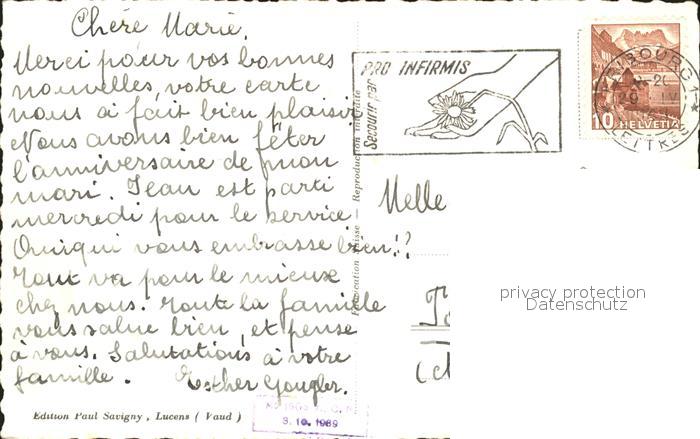 Chère Marie,
Merci pour vos bonnes
nouvelles, votre carte
nous a fait bien plaisir
Nous avons bien fêter
l'anniversaire de mon
mari. Jean est parti
mercredi pour le service
Ouiqui vous embrasse bien!?
Tout va pour le mieux
chez nous. Toute la famille
vous salue bien, et pense
à vous. Salutations à votre
famille. Esther Gougler.
Edition Paul Savigny, Lucens (Vaud)
3.10.1989
Fabrication Suisse — Reproduction interdite
PRO INFIRMIS
Secourir par
FRIBOURG 1
LETTRES
10 HELVETIA
Melle
privacy protection
Datenschutz